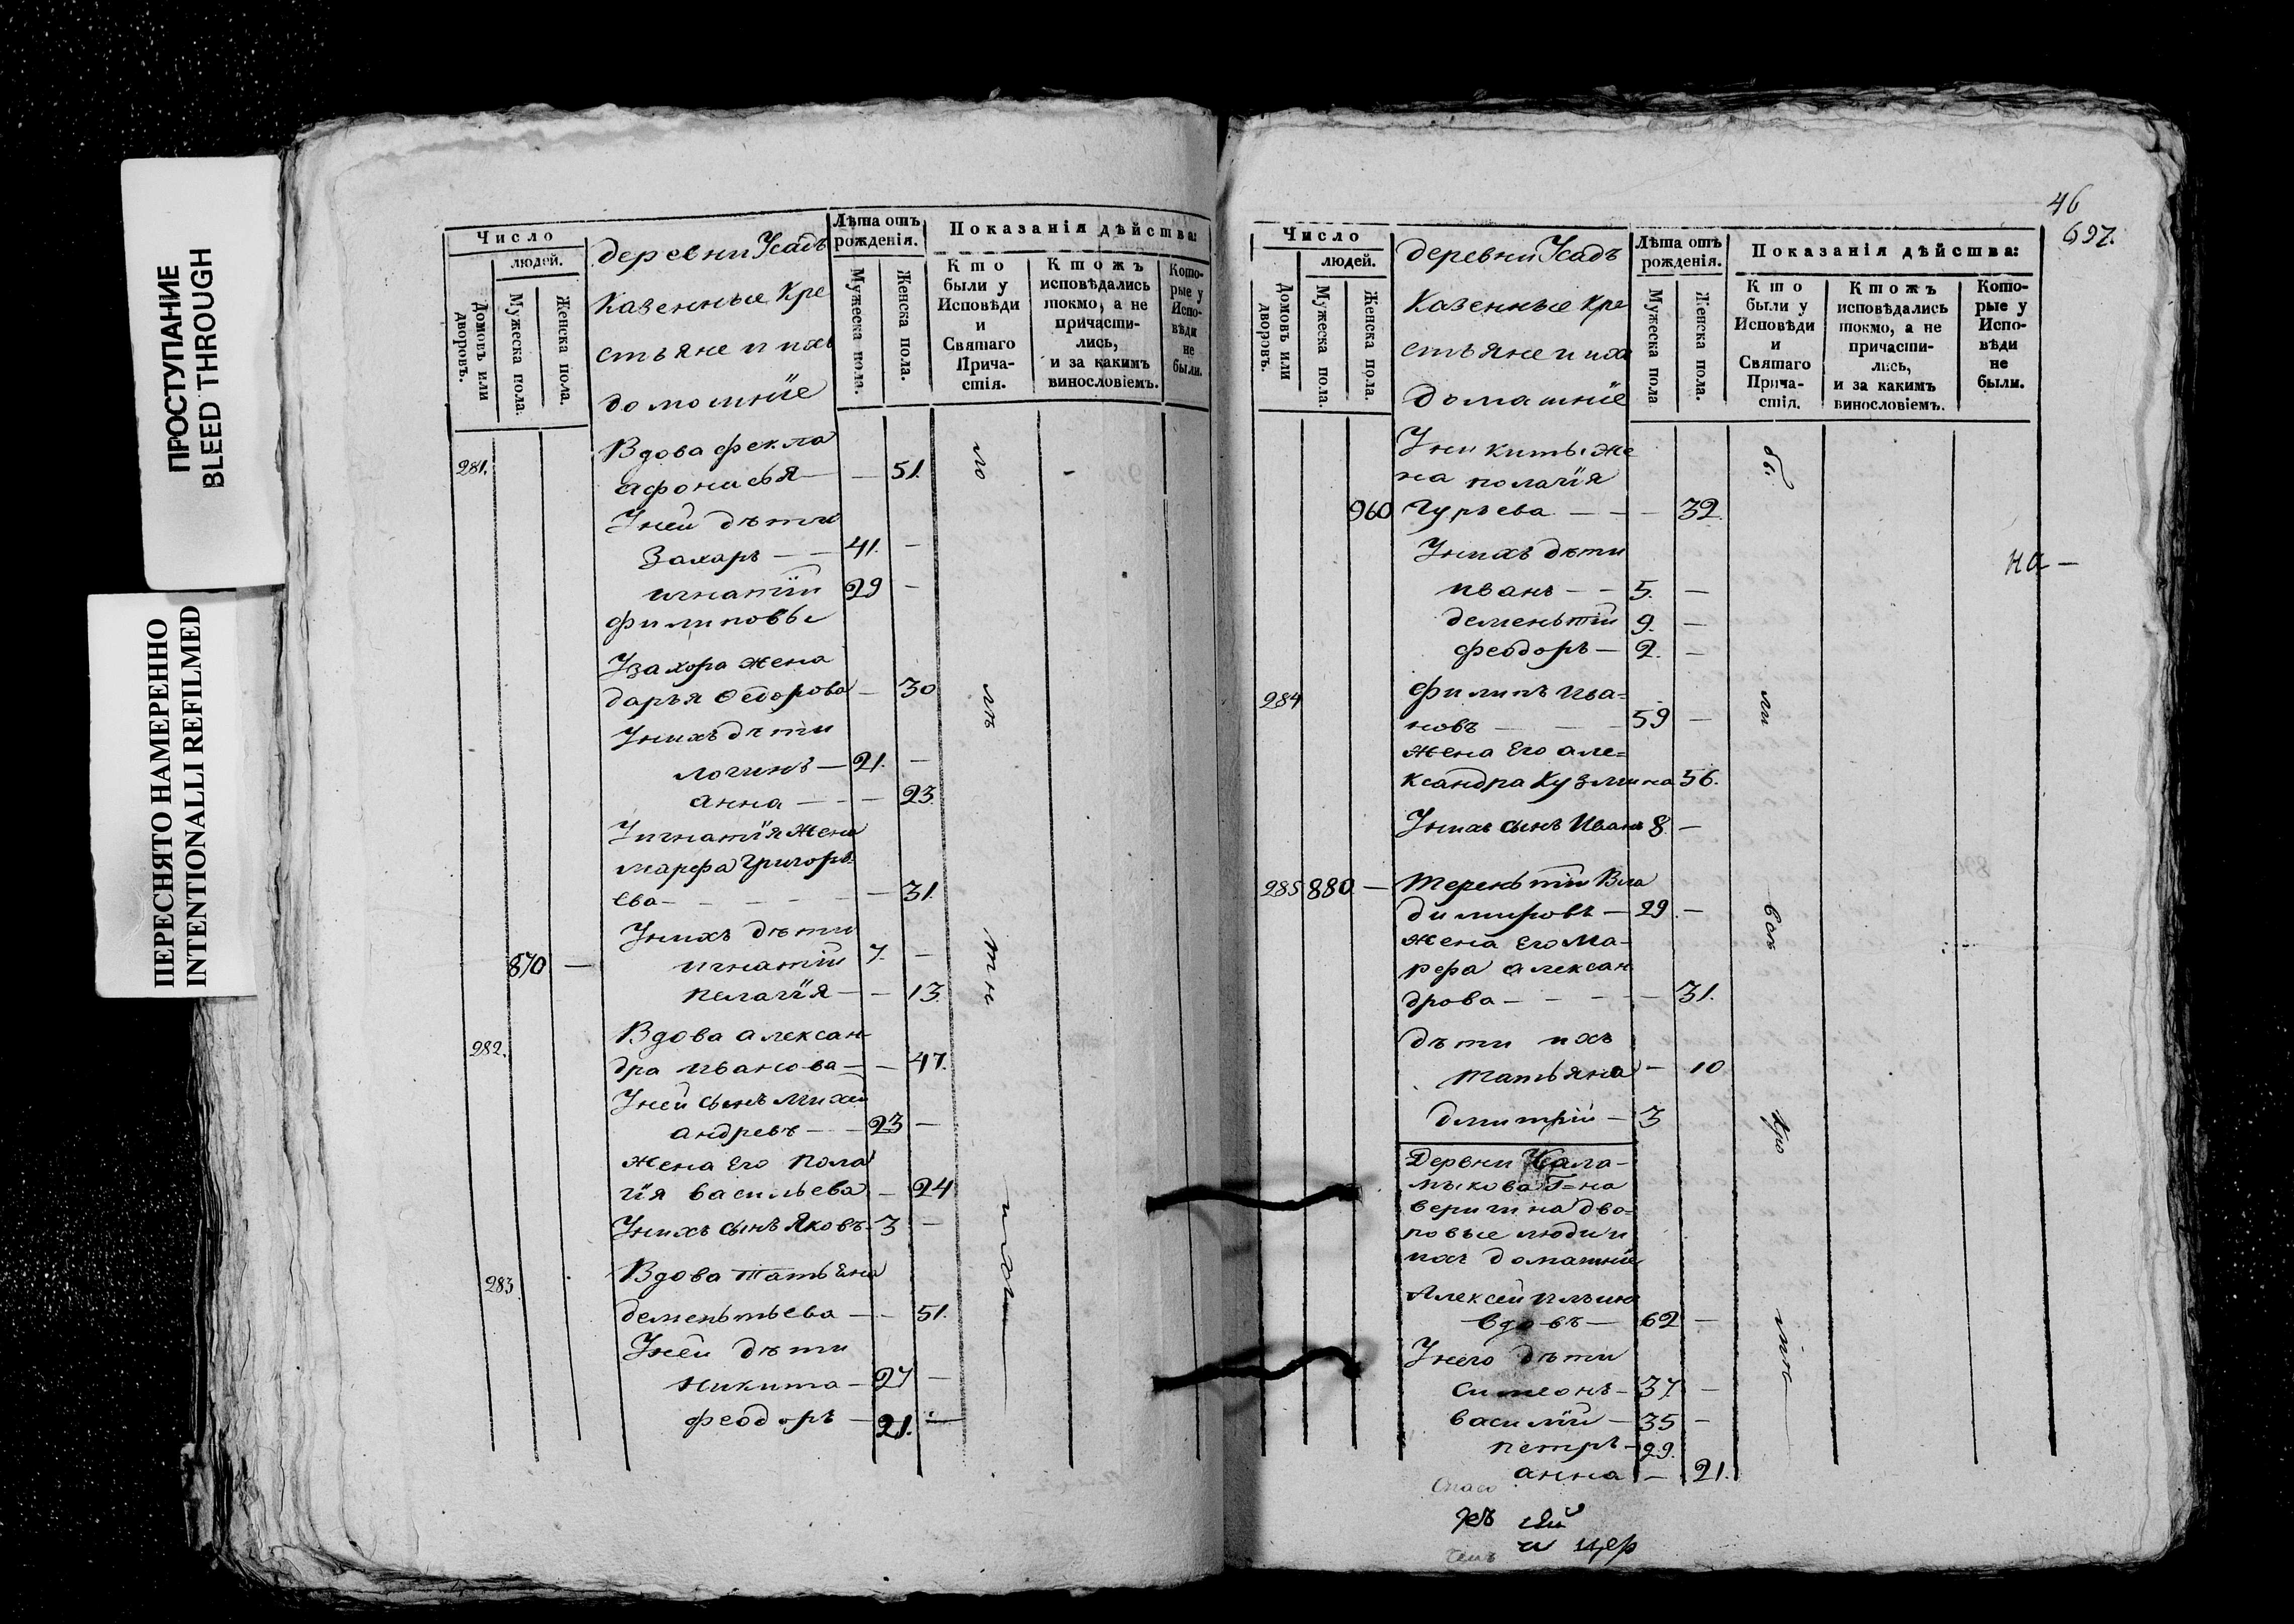 ПРОСТУПАНИЕ
BLEED THROUGH
ПЕРЕСНЯТО НАМЕРЕННО
INTENTIONALLI REFILMED
Число
людей.
Домовъ или дворовъ.
Мужеска пола.
Женска пола.
деревни Усадъ
Казенные Кре
стьяне и ихъ
домошніе
Лѣта отъ рожденія.
Мужеска пола.
Женска пола.
Показанія дѣйства:
Кто были у Исповѣди и Святаго Прича-стія.
Ктожъ исповѣдались токмо, а не причасти-лись, и за какимъ винословіемъ.
Кото-рые у Испо-вѣди не были.
281. Вдова фекла
афонасья — — 51.
Уней дѣти
Захаръ — — 41. —
игнатій 29 —
филиповы
Узахора жена
дарья Федорова — 30
Унихъ дѣти
логинъ — 21. —
анна — — — 23.
Уигнатія жена
марфа Григорь
ева — — — — — 31.
Унихъ дѣти
870 — игнатій 7. —
пелагія — — 13.
282. Вдова алексан
дра иванова — — 47.
Уней сынъ михей
андревъ — — 23 —
жена Его пола
гія васильева — 24
Унихъ сынъ Яковъ — 3 —
283. Вдова татьяна
дементьева — — 51.
Уней дѣти
никита — 27 —
феодоръ — 21. —
46
697.
Число
людей.
Домовъ или дворовъ.
Мужеска пола.
Женска пола.
деревни Усадъ
Казенные кре
стьяне и ихъ
домашніе
Лѣта отъ рожденія.
Мужеска пола
Женска пола.
Показанія дѣйства:
Кто были у Исповѣди и Святаго Прича-стія.
Ктожъ исповѣдались токмо, а не причасти-лись, и за какимъ винословіемъ.
Кото-рые у Испо-вѣди не были.
Уникиты же
на полагія
960 Гурьева — — — 32.
Унихъ дѣти
на —
иванъ — — 5. —
дементій 9. —
феодоръ — 2. —
284 филипъ ива=
новъ — — — 59 —
жена Его але=
ксандра Кузмина 56.
Унихъ сынъ Иванъ 8 —
285 880 — терентій Вла
димировъ — 29. —
жена Его ма-
рфа алексан
дрова — — — — 31.
дѣти ихъ
татьяна — 10
дмитрій — 3
Дервни Кала-
мыкова Г=на
веригина дво=
ровые люди и
ихъ домашніе
Алексей ильинъ
вдовъ — 62 —
Унего дѣти
симеонъ — 37. —
василій — 35 —
петръ — 29.
анна — 21.
и цер